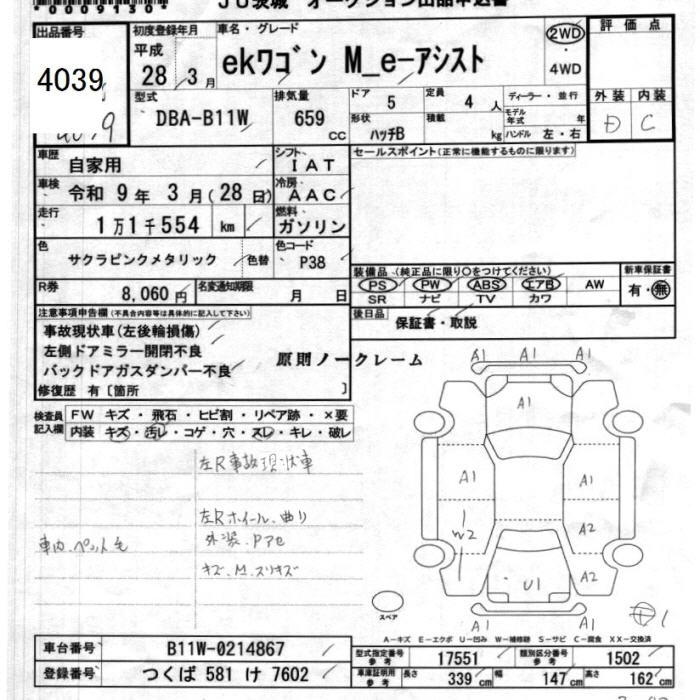 0009130
JU茨城 オークション出品申込書
出品番号
4039
初度登録年月
平成
28 年 3 月
車名・グレード
ekワゴン M_e-アシスト
2WD
・
4WD
評価点
外装 内装
D C
型式
DBA-B11W
排気量
659 cc
ドア 5
定員 4 人
形状 ハッチB
積載 kg
ディーラー・並行
モデル年式 年
ハンドル 左・右
車歴 自家用
シフト IAT
セールスポイント(正常に機能するものに限ります)
車検 令和 9年 3月(28日)
冷房 AAC
走行 1万1千554 km
燃料 ガソリン
色 サクラピンクメタリック 色替
色コード P38
R券 8,060円
名変通知期限 月 日
装備品(純正品に限り○をつけてください)
PS PW ABS エアB AW
SR ナビ TV カワ
新車保証書
有・無
後日品 保証書・取説
注意事項申告欄(不具合内容等は具体的に記入して下さい)
事故現状車(左後輪損傷)
左側ドアミラー開閉不良
バックドアガスダンパー不良
原則ノークレーム
修復歴 有〔箇所 〕
検査員記入欄
FW キズ・飛石・ヒビ割・リペア跡・×要
内装 キズ・汚レ・コゲ・穴・スレ・キレ・破レ
左R事故現状車
左Rホイール、曲り
外装、Pアセ
キズ、M、スリキズ
車内、ペット毛
A1 A1 A1
A1
A1 A1
W2 A2
A2
U1
A1 A1 A1
スペア
1
A-キズ E-エクボ U-凹み W-補修跡 S-サビ C-腐食 XX-交換済
車台番号 B11W-0214867
登録番号 つくば 581 け 7602
型式指定番号 参考 17551
類別区分番号 参考 1502
車庫証明用 参考 長さ 339 cm 幅 147 cm 高さ 162 cm